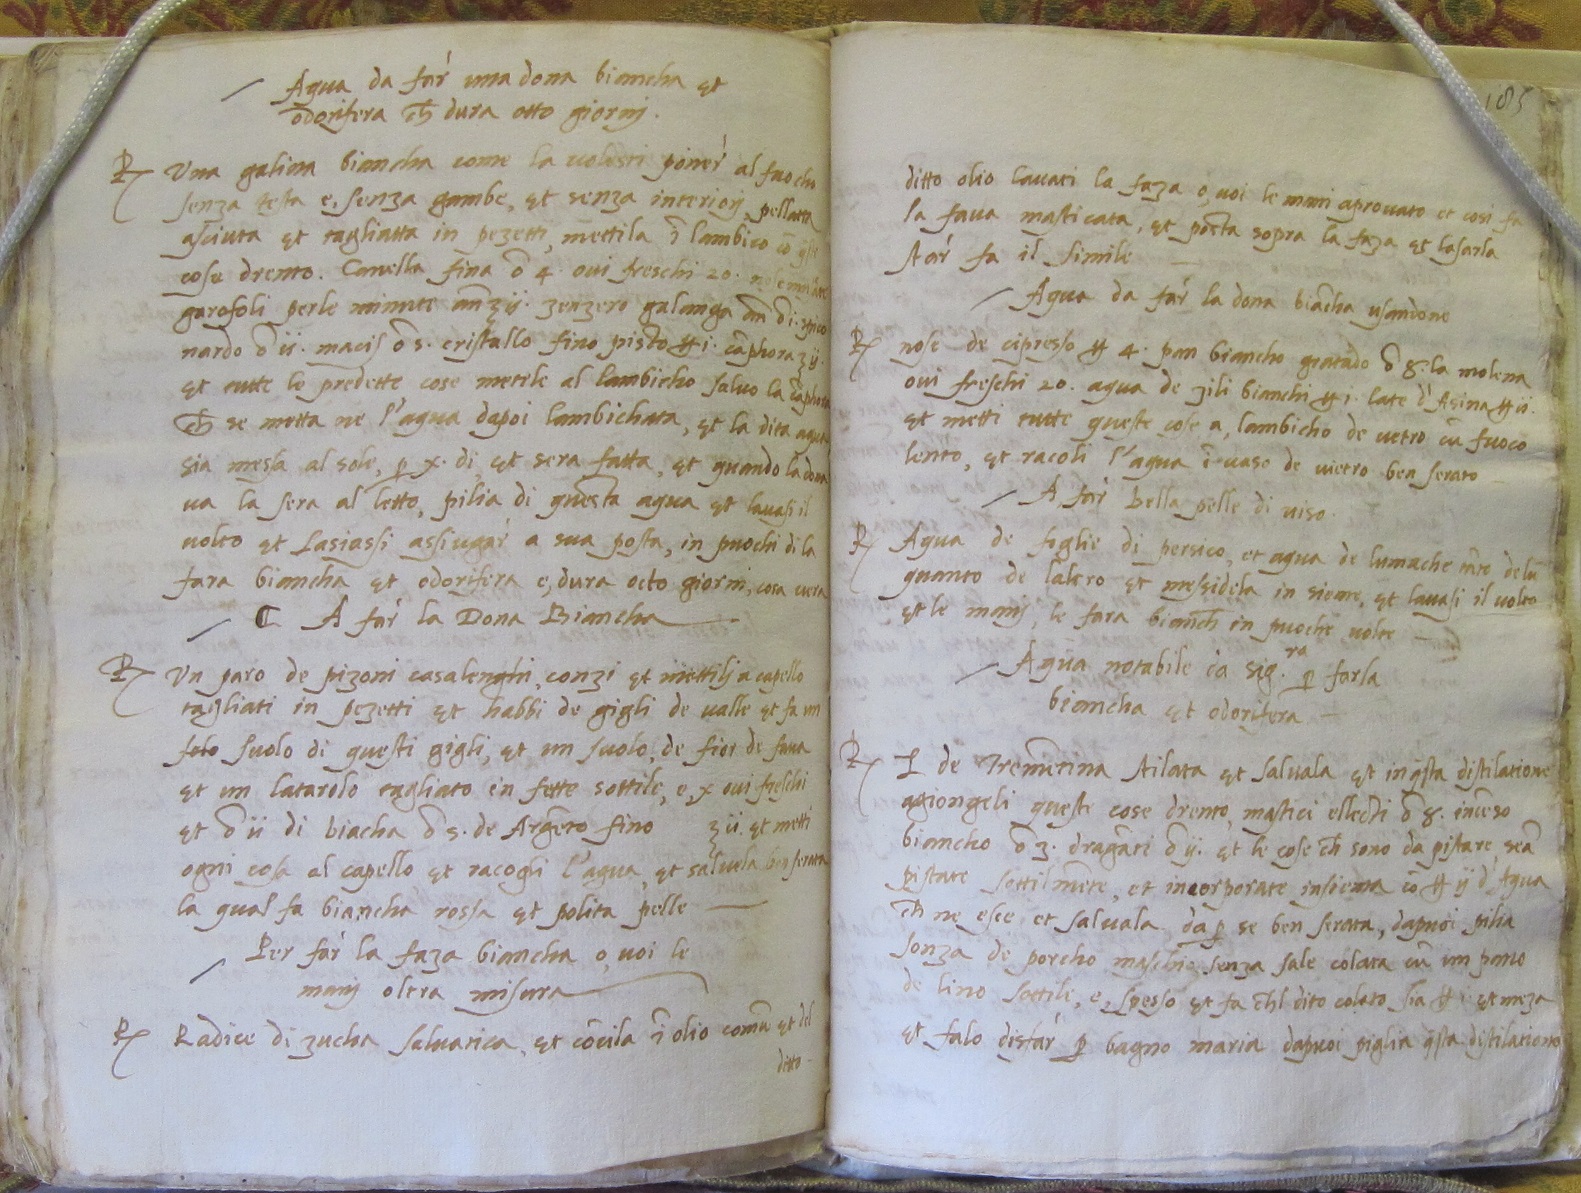 Aqua da far una dona biancha et
odorifera ch dura otto giorni.
Rx Una galina biancha come la volessi poner al fuocho
senza testa e, senza gambe, et senza interiorj, pellatta
asciuta et tagliatta in pezetti, mettila ĩ lambico cõ q̃ste
cose drento. Canella fina ℥ 4. oui freschi 20. nose muscate
garofoli perle minute anʒ ij. zenzero galanga añ ℥ i. spico
nardo ℥ ii. macis ℥ s. cristallo fino pisto ℔ i. cãphora ʒ ij.
et tutte le predette cose metile al lambicho saluo la cãphora
ch̃ se metta ne l'aqua dapoi lambichata, et la dita aqua
sia messa al sole, ꝑ x. di et sera fatta, et quando la dona
ua la sera al letto, pilia di questa aqua et lauasi il
uolto et lasiassi assiugar a sua posta, in puochi di la
fara biancha et odorifera e, dura octo giorni, cosa uera
C A far la Dona Biancha
Rx Un paro de pizoni casalenghi, conzi et mettilj a capello
tagliati in pezetti et habbi de gigli de ualle et fa un
solo suolo di questi gigli, et un suolo, de fior de faua
et un latarolo tagliato in fette sottile, e x oui freschi
et ℥ ii di biacha ℥ s. de Argẽto fino ʒ ii, et metti
ogni cosa al capello et racogli l'aqua, et saluela ben serata
la qual fa biancha rossa et polita pelle
Per far la faza biancha o, uoi le
manj oltra misura
Rx Radice di zucha saluatica, et cõcila ĩ olio comũ et del
ditto
185
ditto olio lauati la faza o, uoi le mani aprouato et cosi fa
la faua masticata, et posta sopra la faza et lasarla
star fa il simile
Aqua da far la dona biãcha usandone
Rx nose de cipresso ℔ 4. pan biancho gratado ℥ 8. la molena
oui freschi 20. aqua de zili bianchi ℔ i. late d'Asina ℔ ii.
et metti tutte queste cose a, lambicho de uetro cũ fuoco
lento, et racoli l'aqua ĩ uaso de uietro ben serato
A far Bella pelle di uiso.
Rx Aqua de foglie di persico, et aqua de lumache tãto de lũ
quanto de l'altro et messidela in sieme, et lauasi il uolto
et le manj, le fara bianch̃ in puoche uolte
Aqua notabile ĩa sig.ra ꝑ farla
biancha et odorifera
Rx L de Trementina stilata et saluala et in q̃sta distilatione
agiongeli queste cose drento, mastici elletti ℥ 8. incẽso
biancho ℥ 3. dragãti ℥ ij. et le cose ch̃ sono da pistare, seã
pistate sottilmẽte, et incorporate insiema cõ ℔ ij d'Aqua
ch̃ ne esce et saluala da ꝑ se ben serata, dapuoi pilia
sonza de porcho maschio senza sale colata cũ un pano
de lino sottile, e, spesso et fa ch̃l dito colato sia ℔ i et meza
et falo disfar ꝑ bagno maria dapuoi piglia q̃sta distilatione